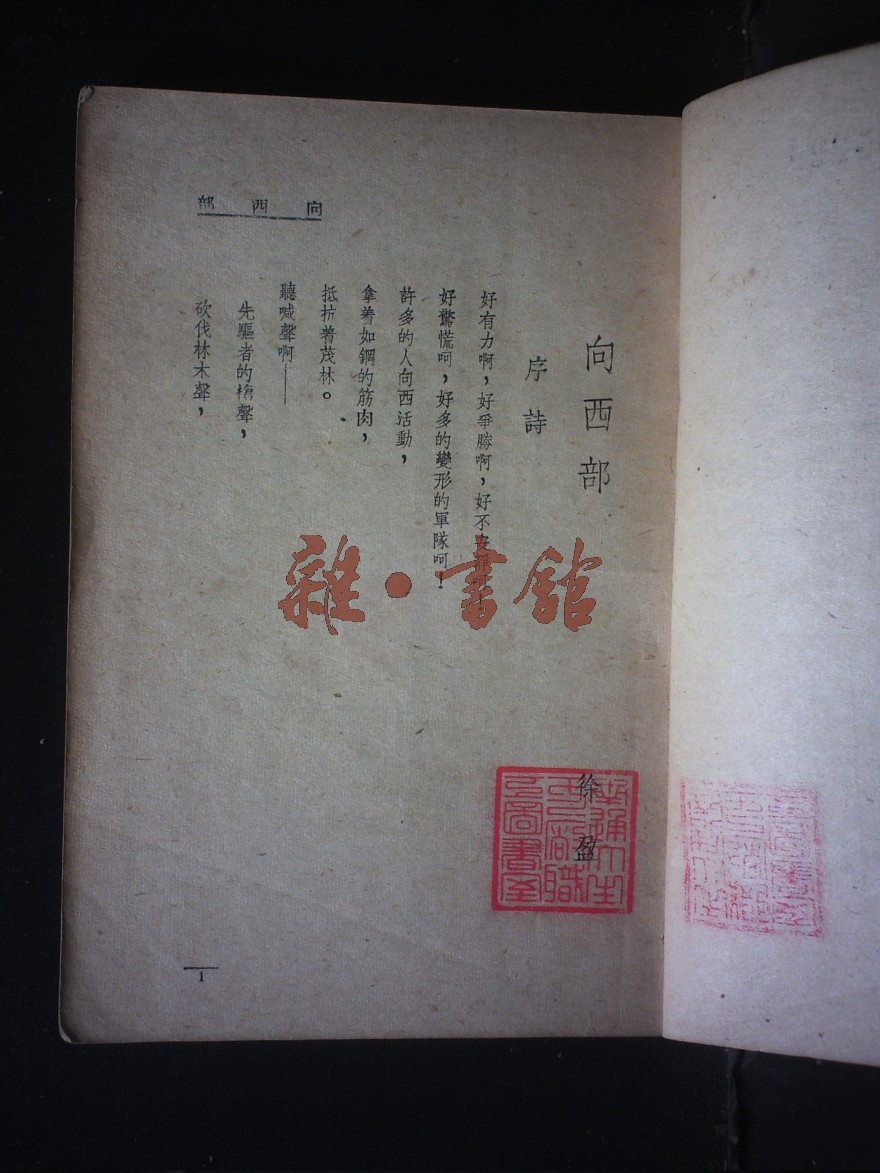 部西向
向西部
序詩
徐盈
好有力啊，好爭勝啊，好不
好驚慌呵，好多的變形的軍隊呵！
許多的人向西活動，
拿着如鋼的筋肉，
抵抗着茂林。
聽喊聲啊——
先驅者的槍聲，
砍伐林木聲，
1
雜·書館